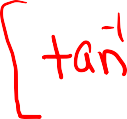 [tan⁻¹